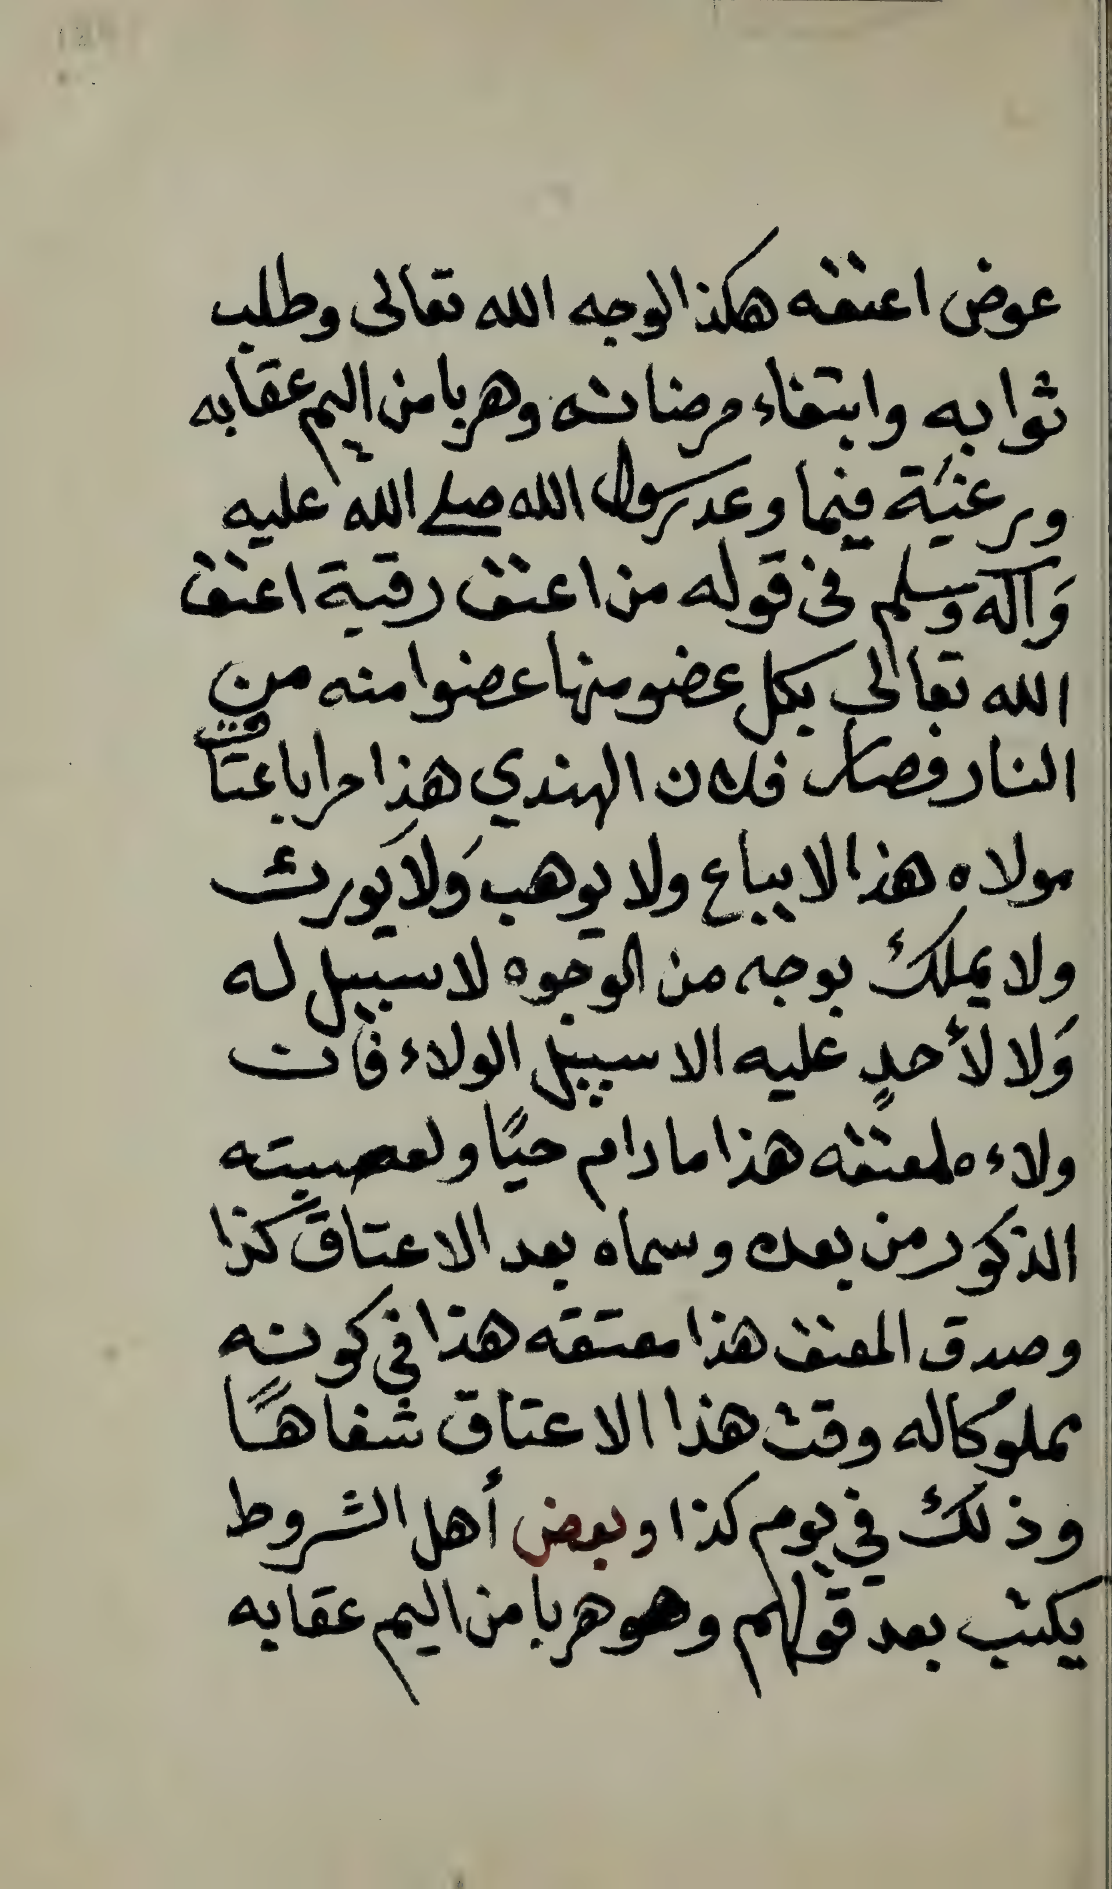 عوض اعتقه هكذا لوجه الله تعالى وطلب
ثوابه وابتغاء مرضاته وهربا من اليم عقابه
ورغبة فيما وعد رسول الله صلى الله عليه
وآله وسلم في قوله من اعتق رقبة اعتق
الله تعالى بكل عضو منها عضوا منه من
النار فصار فلان الهندي هذا حرا باعتاق
مولاه هذا لا يباع ولا يوهب ولا يورث
ولا يملك بوجه من الوجوه لا سبيل له
ولا لأحدٍ عليه الا سبيل الولاء فان
ولاءه لمعتقه هذا مادام حيًا ولعصبته
الذكور من بعده وسماه بعد الاعتاق كذا
وصدق المعتق هذا معتقه هذا في كونه
مملوكا له وقت هذا الاعتاق شفاهًا
وذلك في يوم كذا وبعض أهل الشروط
يكتب بعد قولهم وهو هربا من اليم عقابه